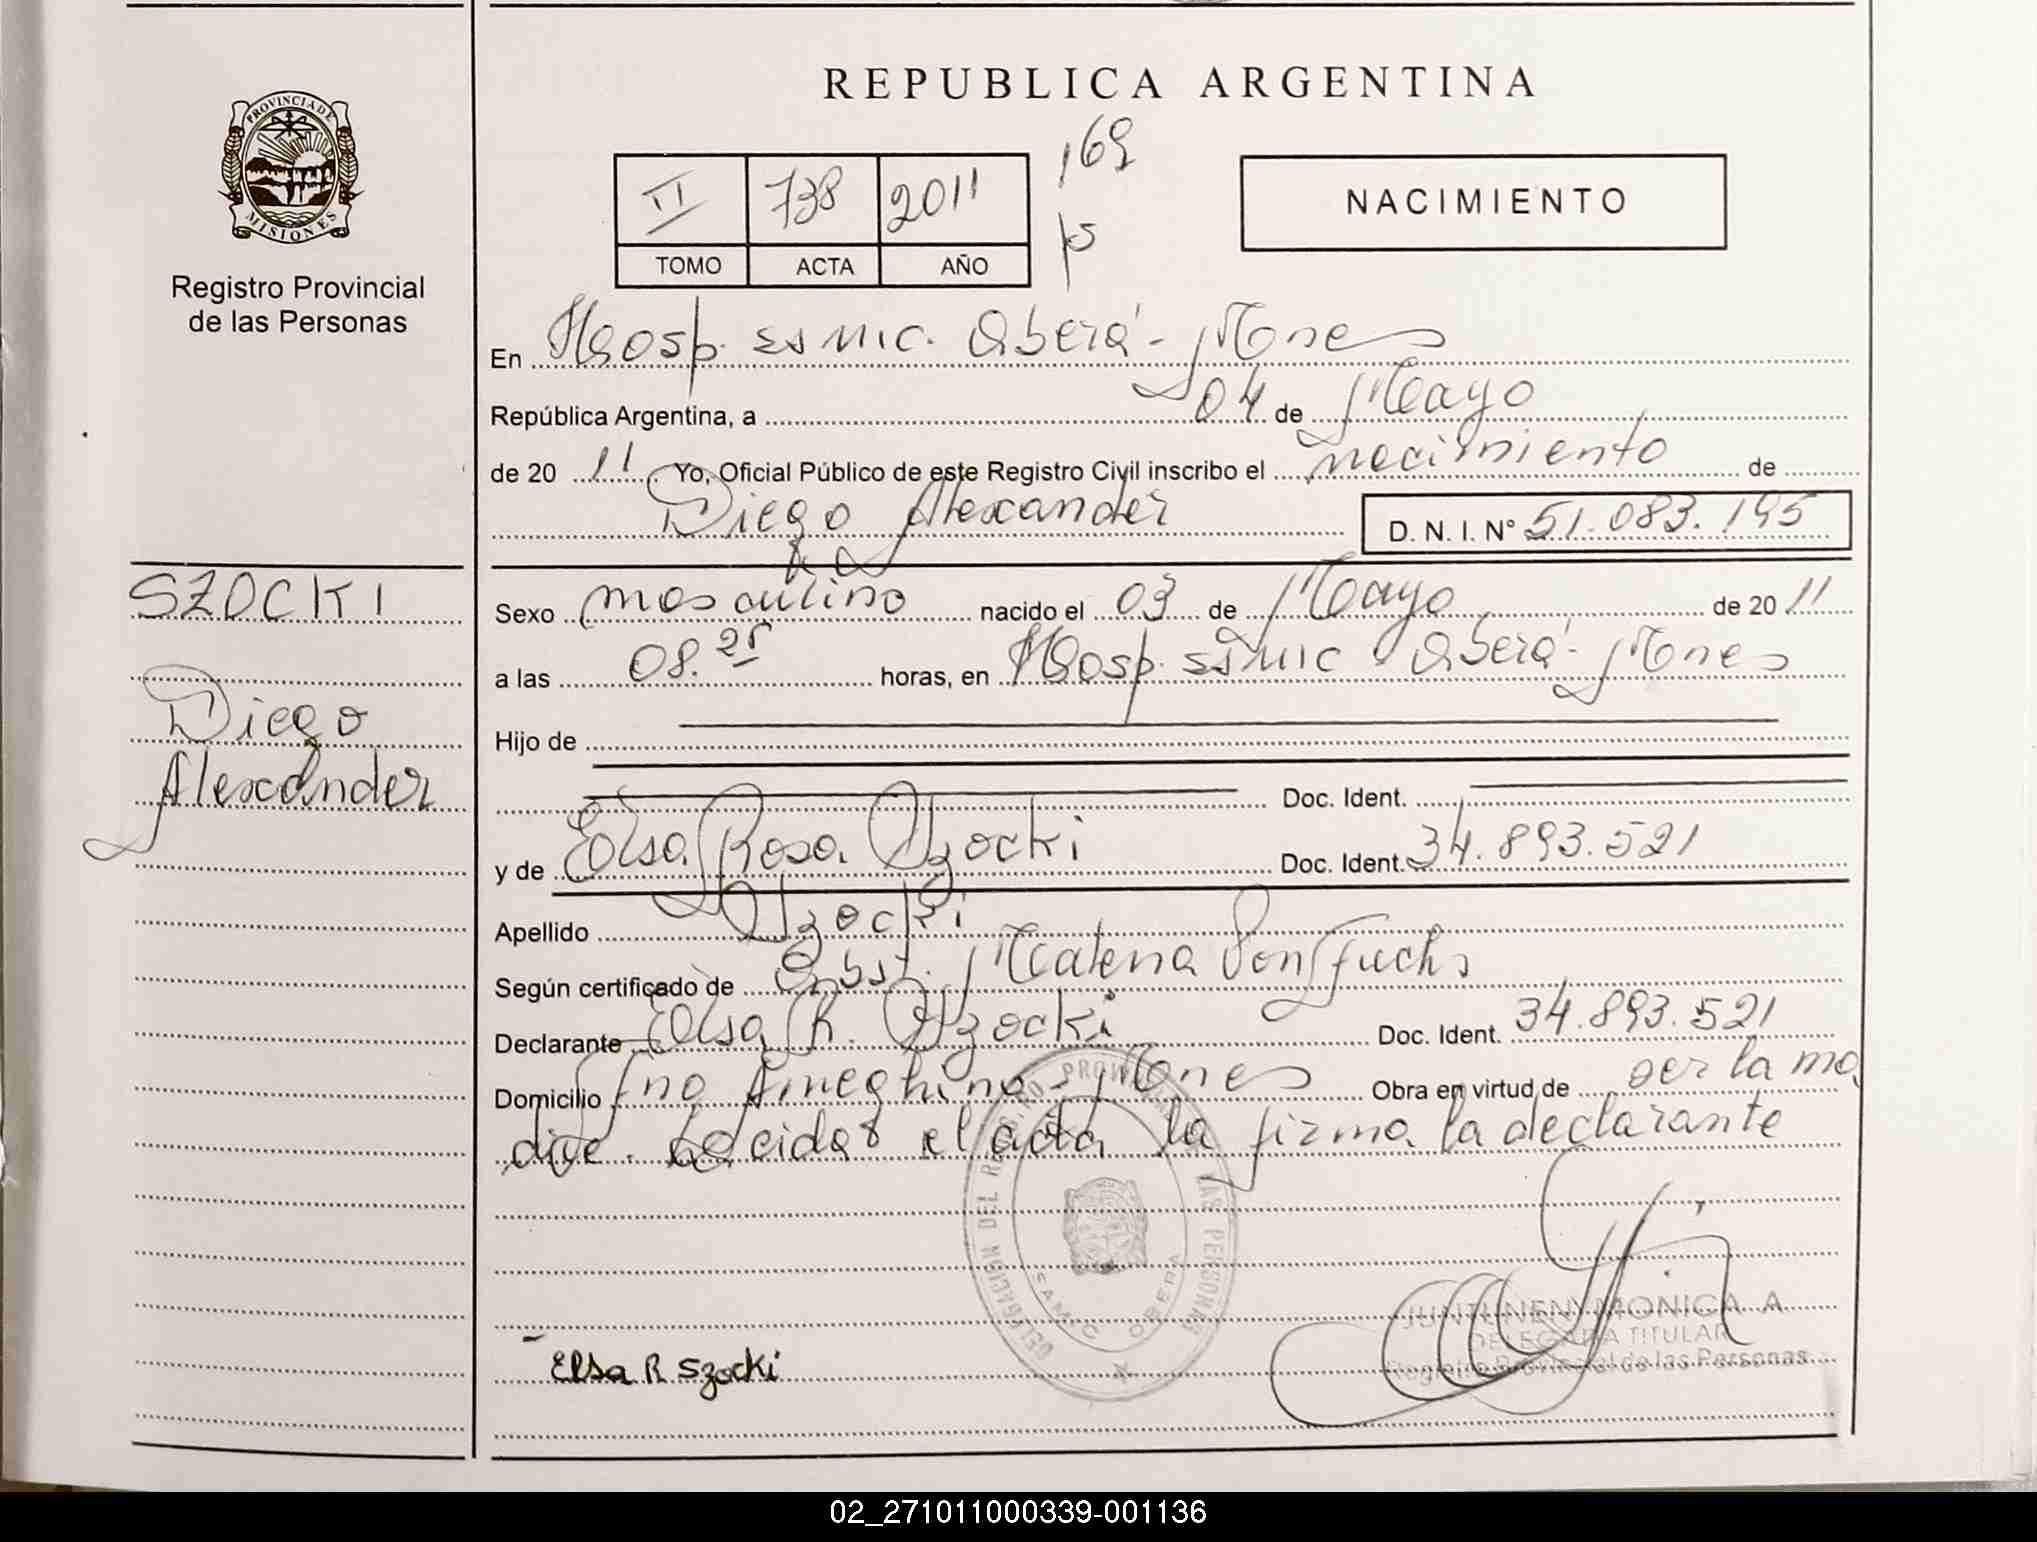 REPUBLICA ARGENTINA
PROVINCIA DE
MISIONES
Registro Provincial
de las Personas
II 738 2011 169
TOMO ACTA AÑO
NACIMIENTO
En Hosp. SAMIC. Oberá - Mnes
República Argentina, a 04 de Mayo
de 20 11 Yo, Oficial Público de este Registro Civil inscribo el nacimiento de
Diego Alexander D. N. I. N° 51.083.195
SZOCKI
Diego
Alexander
Sexo masculino nacido el 03 de Mayo de 20 11
a las 08.25 horas, en Hosp. SAMIC Oberá - Mnes
Hijo de
Doc. Ident.
y de Elsa Rosa Szocki Doc. Ident. 34.893.521
Apellido Szocki
Según certificado de Obst. Malena Von
Declarante Elsa R. Szocki Doc. Ident. 34.893.521
Domicilio Fno Ameghino - Mnes Obra en virtud de ser la ma
dre. Leida el acta la firma la declarante
DELEGACION DEL REGISTRO PROVINCIAL DE LAS PERSONAS
SAMIC OBERA
JUNTUNEN MONICA A
DELEGADA TITULAR
Registro Provincial de las Personas
Elsa R Szocki
02_271011000339-001136